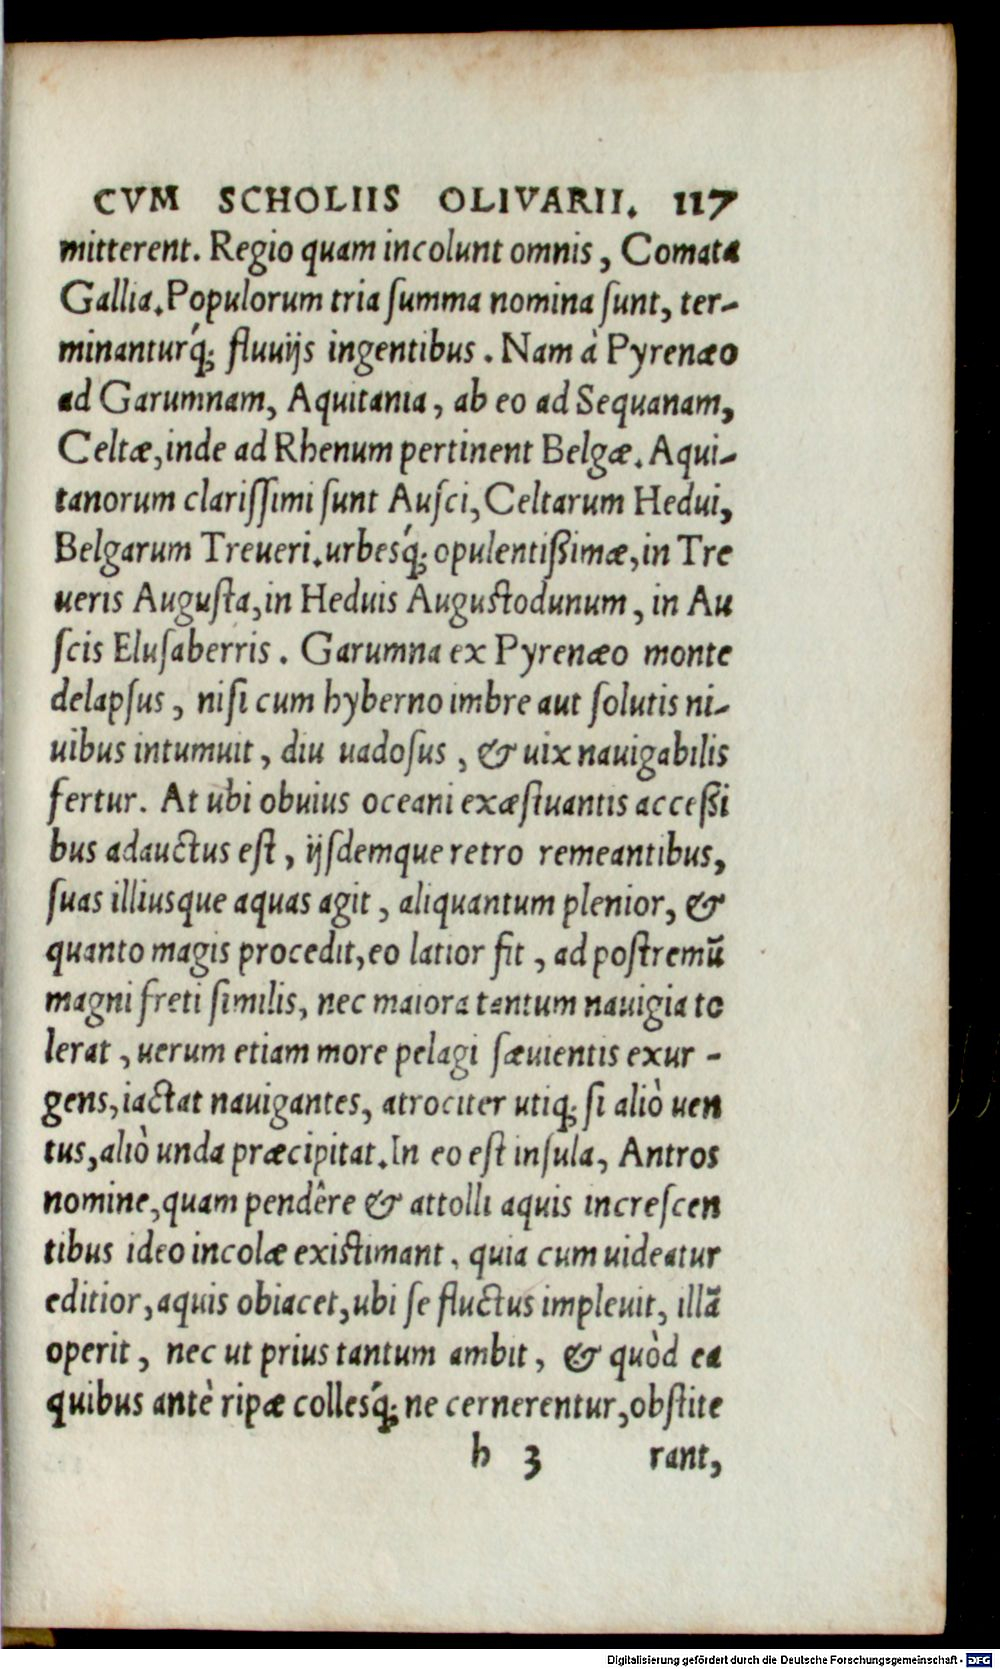 CVM SCHOLIIS OLIVARII. 117
mitterent. Regio quam incolunt omnis, Comata
Gallia. Populorum tria ſumma nomina ſunt, ter-
minanturq́; fluuijs ingentibus. Nam à Pyrenæo
ad Garumnam, Aquitania, ab eo ad Sequanam,
Celtæ, inde ad Rhenum pertinent Belgæ. Aqui-
tanorum clariſſimi ſunt Auſci, Celtarum Hedui,
Belgarum Treueri. urbesq́; opulentißimæ, in Tre
ueris Auguſta, in Heduis Auguſtodunum, in Au
ſcis Eluſaberris. Garumna ex Pyrenæo monte
delapſus, niſi cum hyberno imbre aut ſolutis ni-
uibus intumuit, diu uadoſus, & uix nauigabilis
fertur. At ubi obuius oceani exæſtuantis acceßi
bus adauctus eſt, ijſdemque retro remeantibus,
ſuas illiusque aquas agit, aliquantum plenior, &
quanto magis procedit, eo latior fit, ad poſtremũ
magni freti ſimilis, nec maiora tantum nauigia to
lerat, uerum etiam more pelagi ſæuientis exur-
gens, iactat nauigantes, atrociter utiq; ſi aliò uen
tus, aliò unda præcipitat. In eo eſt inſula, Antros
nomine, quam pendêre & attolli aquis increſcen
tibus ideo incolæ exiſtimant, quia cum uideatur
editior, aquis obiacet, ubi ſe fluctus impleuit, illã
operit, nec ut prius tantum ambit, & quòd ea
quibus antè ripæ collesq́; ne cernerentur, obſtite
h 3 rant,
Digitalisierung gefördert durch die Deutsche Forschungsgemeinschaft - DFG